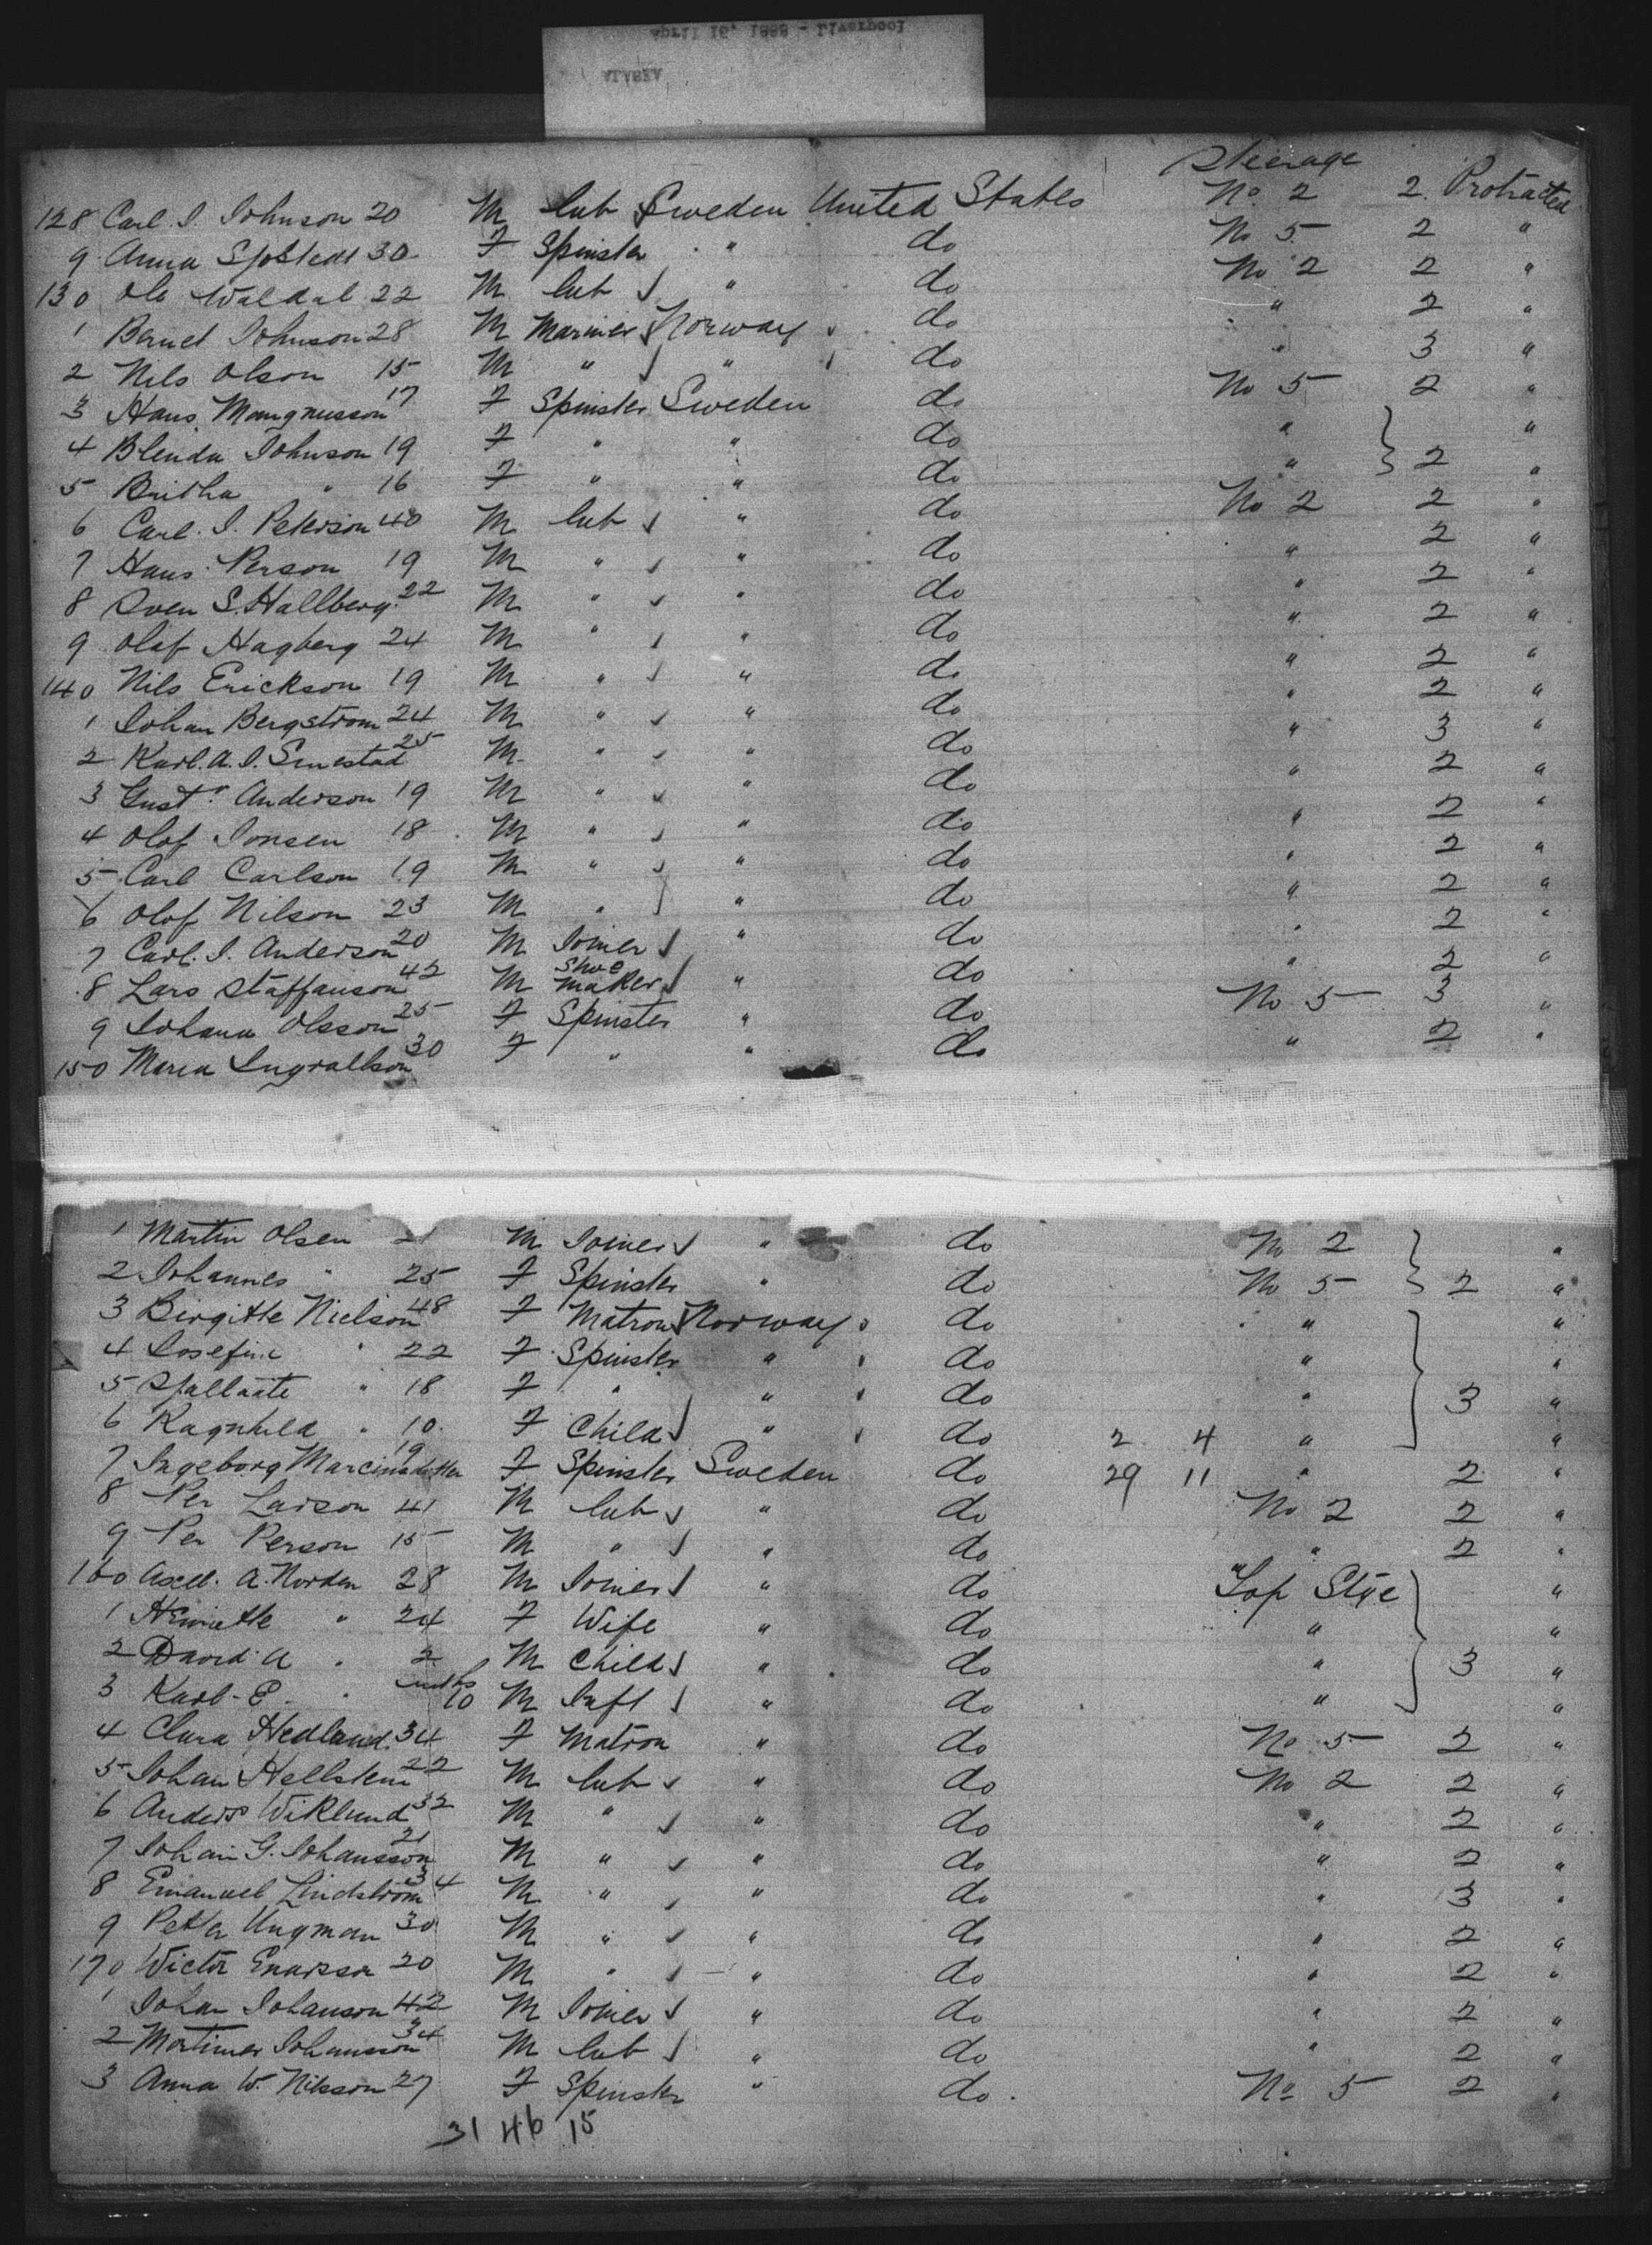 April 16, 1888 - Liverpool
ALASKA
Steerage
128 Carl. I. Johnson 20 M Lab Sweden United States No 2 2 Protracted
9 Anna Sjostedt 30 F Spinster " do No 5 2 "
130 Ole Waldal 22 M Lab " do No 2 2 "
1 Johnson 28 M Mariner Norway do " 2 "
2 Nils Olson 15 M " " do " 3 "
3 Hans Mangnusson 17 F Spinster Sweden do No 5 2 "
4 Blenda Johnson 19 F " " do " "
5 Britha " 16 F " " do " 2 "
6 Carl. I. Peterson 40 M Lab " do No 2 2 "
7 Hans Person 19 M " " do " 2 "
8 Sven S. Hallberg 22 M " " do " 2 "
9 Olaf Hagberg 24 M " " do " 2 "
140 Nils Erickson 19 M " " do " 2 "
1 Johan Bergstrom 24 M " " do " 2 "
2 Karl. A. I. 25 M " " do " 3 "
3 Gustf Anderson 19 M " " do " 2 "
4 Olof Jonsen 18 M " " do " 2 "
5 Carl Carlson 19 M " " do " 2 "
6 Olof Nilson 23 M " " do " 2 "
7 Carl. I. Anderson 20 M Joiner " do " 2 "
8 Lars Staffanson 42 M Shoe maker " do " 2 "
9 Johana Olsson 25 F Spinster " do No 5 3 "
150 Maria Ingvallson 30 F " " do " 2 "
1 Martin Olsen 21 M Joiner " do No 2 "
2 Johannes " 25 F Spinster " do No 5 2 "
3 Birgitte Nielson 48 F Matron Norway do " "
4 Josefine " 22 F Spinster " do " "
5 " 18 F " " do " 3 "
6 Ragnhild " 10 F Child " do 2 4 " "
7 Ingeborg 19 F Spinster Sweden do 29 11 " 2 "
8 Per Larson 41 M Lab " do No 2 2 "
9 Per Person 15 M " " do " 2 "
160 Axel. A. Norden 28 M Joiner " do Top Stge "
1 Henriette " 24 F Wife " do " "
2 David A " 2 M Child " do " 3 "
3 Karl-E. " mths 10 M Inft " do " "
4 Clara Hedlund 34 F Matron " do No 5 2 "
5 Johan Hellstem 22 M Lab " do No 2 2 "
6 Anders Wiklund 32 M " " do " 2 "
7 Johan G. Johansson 21 M " " do " 2 "
8 Emanuel Lindstrom 34 M " " do " 3 "
9 Petter Ungman 30 M " " do " 2 "
170 Wictor Enarson 20 M " " do " 2 "
1 Johan Johanson 42 M Joiner " do " 2 "
2 Mortimer Johansson 34 M Lab " do " 2 "
3 Anna W. Nilsson 27 F Spinster " do No 5 2 "
31 46 15